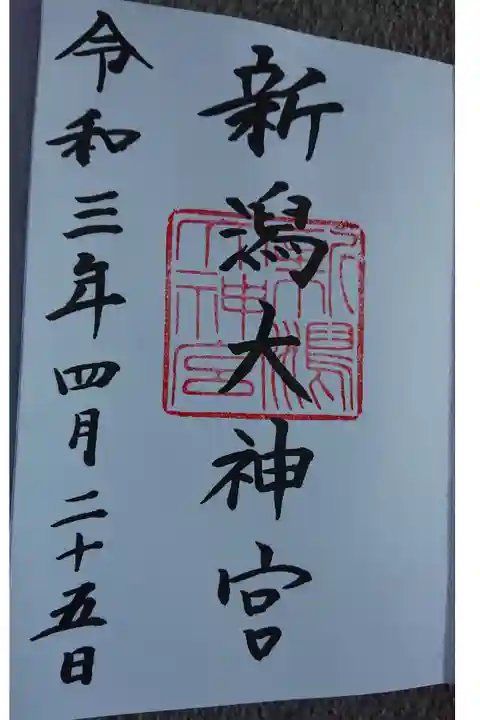 新潟大神宮
令和三年四月二十五日
新潟大神宮